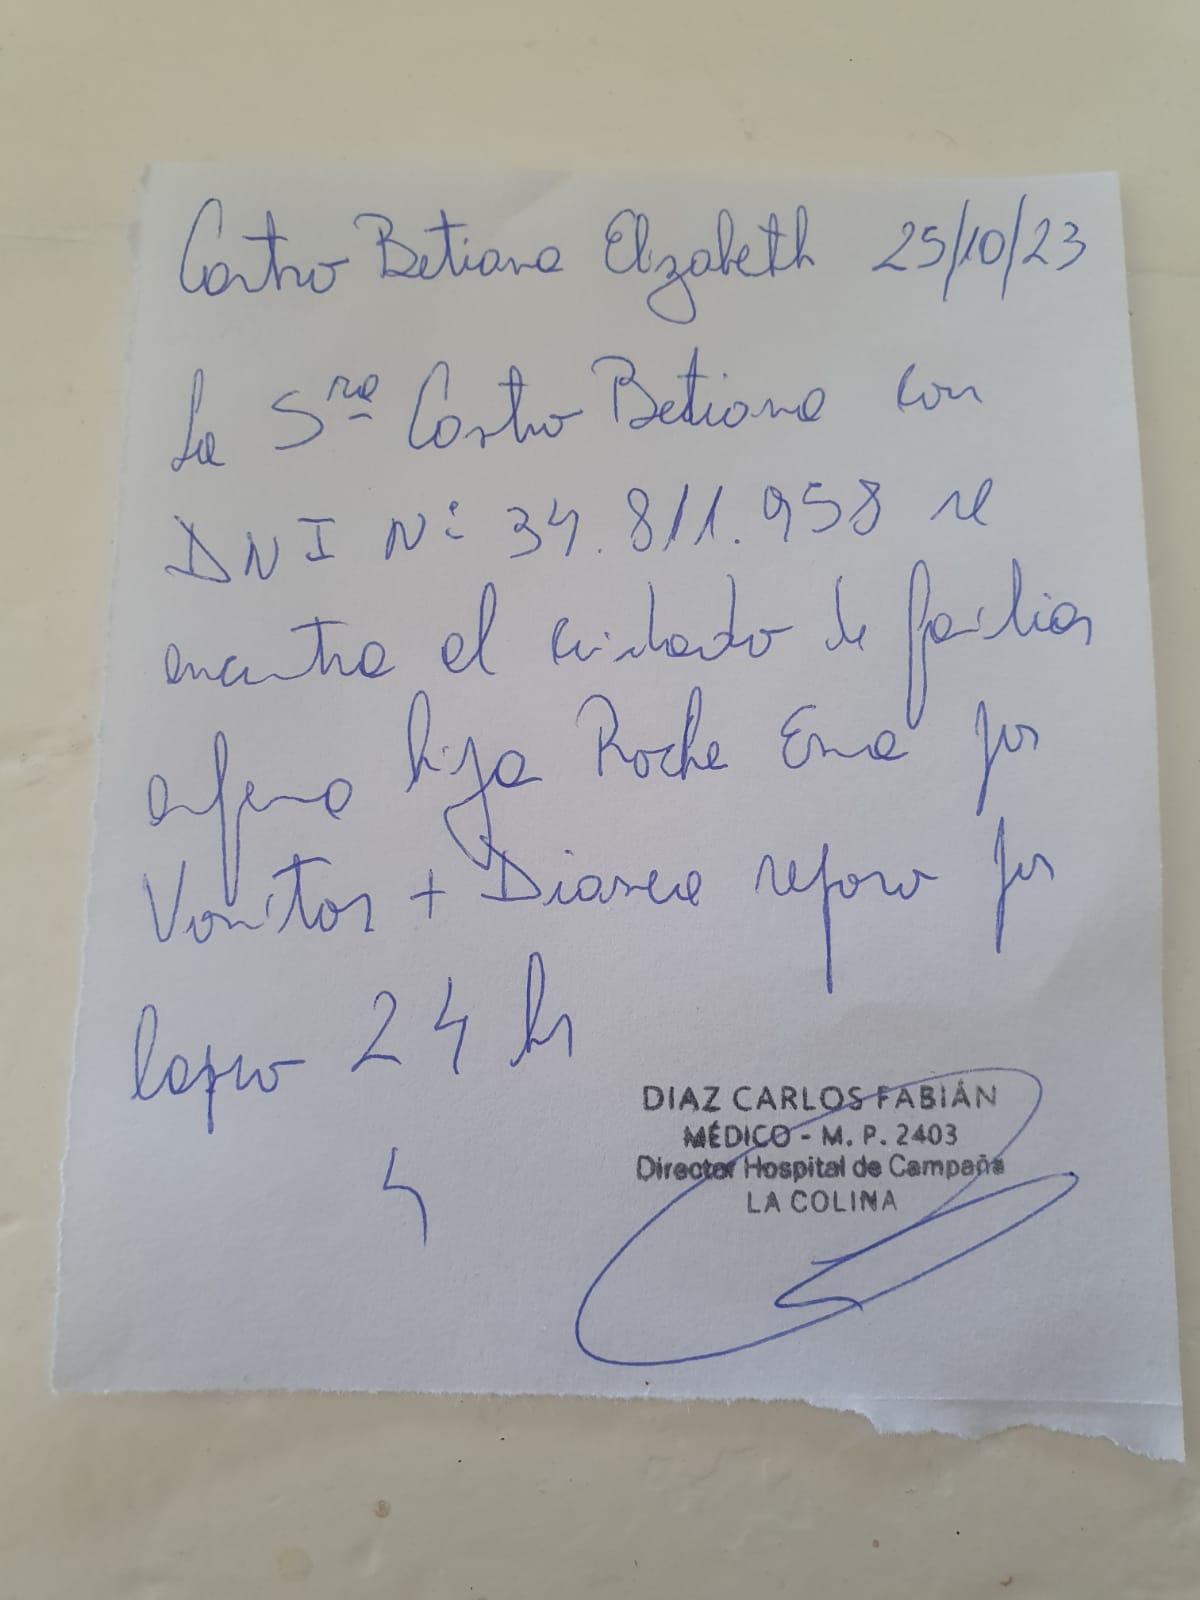 Castro Betiana Elizabeth 25/10/23
La Sra Castro Betiana con
DNI N: 34.811.958 se
encuentra al cuidado de familiar
enferma hija Roche Ema por
Vomitos + Diarrea reposo por
lapso 24 hs
DIAZ CARLOS FABIÁN
MÉDICO - M. P. 2403
Director Hospital de Campaña
LA COLINA